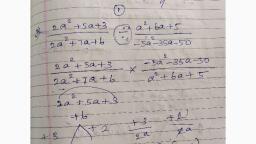 ①
2a²+5a+3 / 2a²+7a+6 ÷ a²+6a+5 / -5a²-35a-50
2a²+5a+3 / 2a²+7a+6 × -5a²-35a-50 / a²+6a+5
2a²+5a+3
+6
+3 +2 +3/2a +2/2a